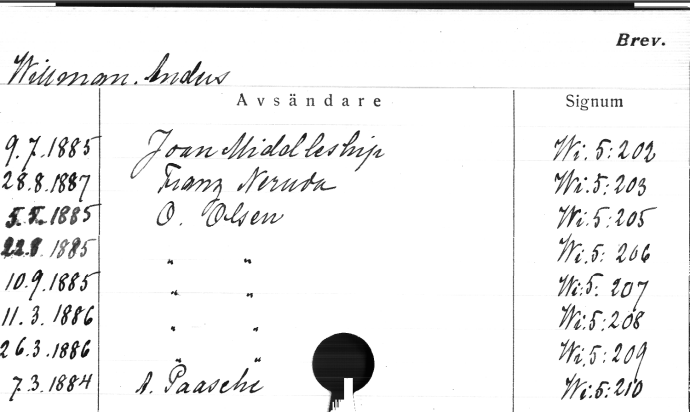 Brev.
Willman. Andus
Avsändare Signum
9.7.1885 Joan Middleship Wi.5:202
28.8.1887 Franz Neruda Wi.5:203
5.5.1885 O. Olsen Wi.5:205
22.8 1885 " " Wi.5:206
10.9.1885 " " Wi.5:207
11.3.1886 " " Wi.5:208
26.3.1886 " " Wi.5:209
7.3.1884 A. Paasche Wi:5:210